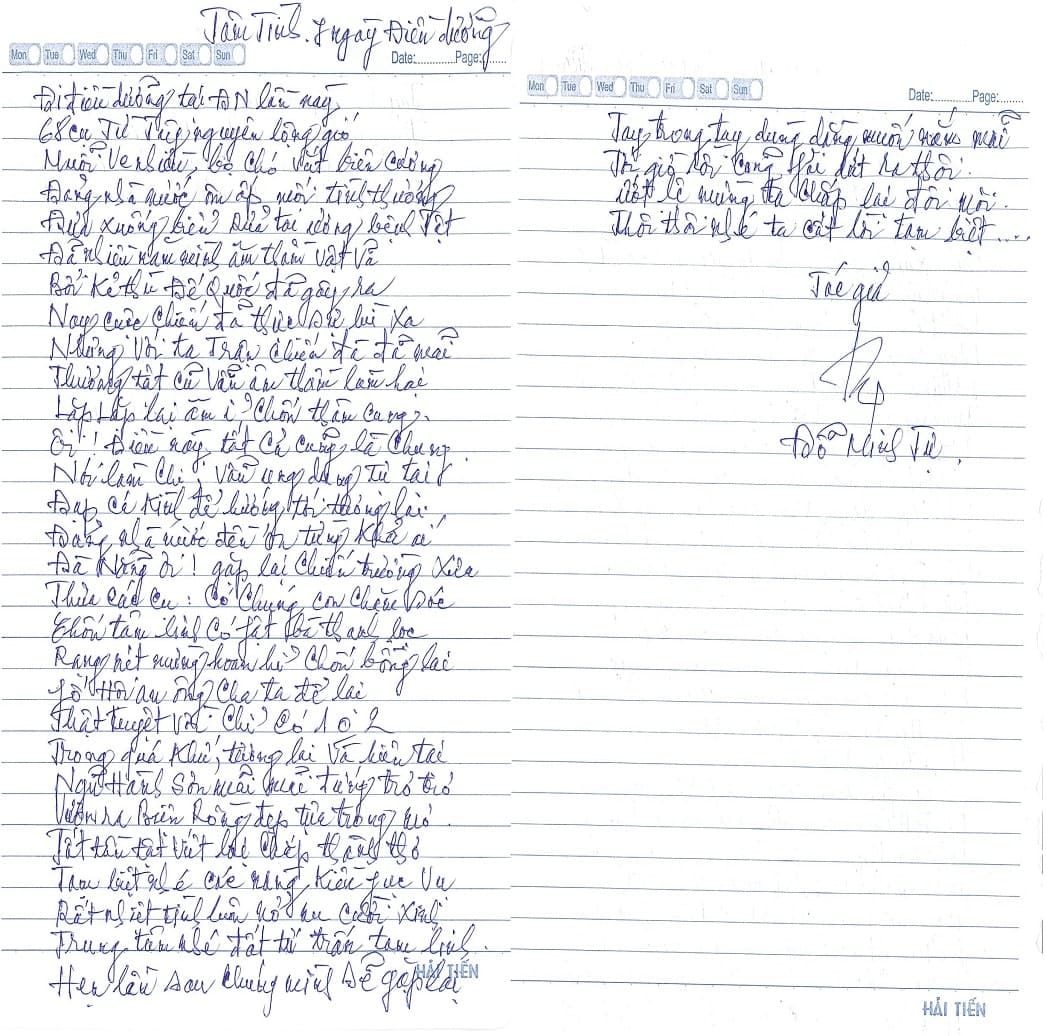 Tâm Tình. 7 ngày Điều dưỡng
Mon Tue Wed Thu Fri Sat Sun
Date:............Page:......
Đi điều dưỡng tại ĐN lần này
68 cụ Từ Thái nguyên lộng gió
Muôn Ve bỏ chó vát biên cương
Đảng nhà nước ôm ấp mối tình thương
Đưa xuống biển xua tai ương bệnh Tật
Đã nhiều năm mình âm thầm Vật Vã
Bởi Kẻ thù Đế Quốc đã gây ra
Nay cuộc Chiến đã thực sự lùi Xa
Nhưng Với ta Trận Chiến đã đã mãi
Thương tật cũ Vẫn âm thầm làm hại
Lặp Lặp lại âm ỉ Chốn thâm Cung,
Ôi! Điều này tất Cả Cũng là Chung
Nói làm Chi, Vẫn ung dung Tự tại
Đạp Cá Kình để hướng tới tương lai
Đảng nhà nước đền ơn từng Khả ái
Đà Nẵng ơi! gặp lại Chiến trường Xưa
Thưa Các Cụ: Có Chúng con Chăm Sóc
Chốn tâm linh Có Phật bà thanh lọc
Rạng nét mừng hoan hỉ Chốn bồng lai
Hội An ông Cha ta để lại
Thật tuyệt Vời. Chỉ Có 1 0 2
Trong quá Khứ, tương lai Và hiện tại
Ngũ Hành Sơn mãi mãi đứng trơ trơ
Vươn ra Biển Rộng đẹp tựa trong mơ.
Tất tần tật Viết lại Chép thành thơ
Tạm biệt nhé các nàng Kiều Phục Vụ
Rất nhiệt tình luôn nở nụ cười Xinh
Trung tâm nhé đất tứ trấn tam linh.
Hẹn lần sau Chúng mình Sẽ gặp lại
HẢI TIẾN
Mon Tue Wed Thu Fri Sat Sun
Date:............Page:......
Tay trong tay dùng dằng muốn nắm mãi
Tới giờ rồi Cũng Phải dứt ra thôi.
Lít lê mừng ta Chắp lại đôi môi.
Thôi thôi nhé ta cất lời tạm biệt....
Tác giả
Đỗ Minh Tự.
HẢI TIẾN